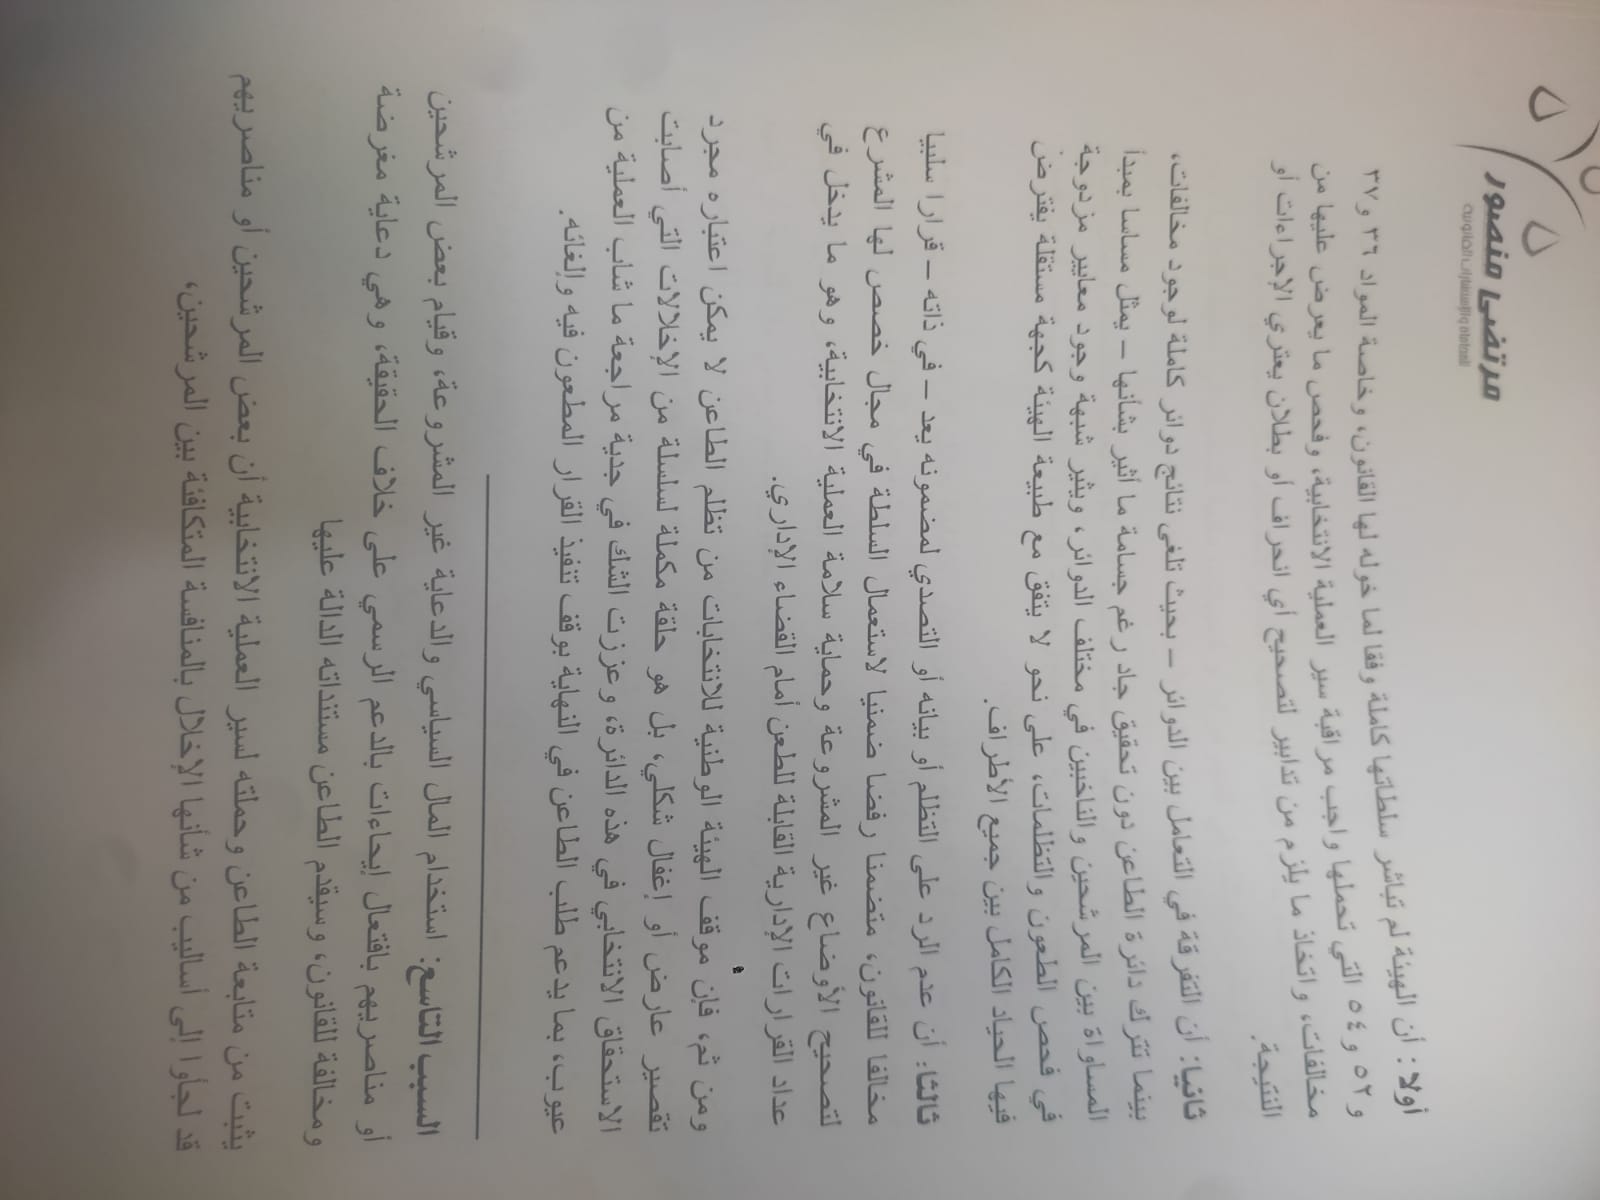 مرتضى منصور
للمحاماة والاستشارات القانونية
أولا: أن الهيئة لم تباشر سلطاتها كاملة وفقا لما خوله لها القانون، وخاصة المواد ٣٦ و٣٧
و٥٢ و٥٤ التي تحملها واجب مراقبة سير العملية الانتخابية، وفحص ما يعرض عليها من
مخالفات، واتخاذ ما يلزم من تدابير لتصحيح أي انحراف أو بطلان يعتري الإجراءات أو
النتيجة.
ثانيا: أن التفرقة في التعامل بين الدوائر – بحيث تلغى نتائج دوائر كاملة لوجود مخالفات،
بينما تترك دائرة الطاعن دون تحقيق جاد رغم جسامة ما أثير بشأنها – يمثل مساسا بمبدأ
المساواة بين المرشحين والناخبين في مختلف الدوائر، ويثير شبهة وجود معايير مزدوجة
في فحص الطعون والتظلمات، على نحو لا يتفق مع طبيعة الهيئة كجهة مستقلة يفترض
فيها الحياد الكامل بين جميع الأطراف.
ثالثا: أن عدم الرد على التظلم أو بيانه أو التصدي لمضمونه يعد – في ذاته – قرارا سلبيا
مخالفا للقانون، متضمنا رفضا ضمنيا لاستعمال السلطة في مجال خصص لها المشرع
لتصحيح الأوضاع غير المشروعة وحماية سلامة العملية الانتخابية، وهو ما يدخل في
عداد القرارات الإدارية القابلة للطعن أمام القضاء الإداري.
ومن ثم، فإن موقف الهيئة الوطنية للانتخابات من تظلم الطاعن لا يمكن اعتباره مجرد
تقصير عارض أو إغفال شكلي، بل هو حلقة مكملة لسلسلة من الإخلالات التي أصابت
الاستحقاق الانتخابي في هذه الدائرة، وعززت الشك في جدية مراجعة ما شاب العملية من
عيوب، بما يدعم طلب الطاعن في النهاية بوقف تنفيذ القرار المطعون فيه وإلغائه.
السبب التاسع: استخدام المال السياسي والدعاية غير المشروعة، وقيام بعض المرشحين
أو مناصريهم بافتعال إيحاءات بالدعم الرسمي على خلاف الحقيقة، وهي دعاية مغرضة
ومخالفة للقانون، وسيقدم الطاعن مستنداته الدالة عليها
يثبت من متابعة الطاعن وحملته لسير العملية الانتخابية أن بعض المرشحين أو مناصريهم
قد لجأوا إلى أساليب من شأنها الإخلال بالمنافسة المتكافئة بين المرشحين،